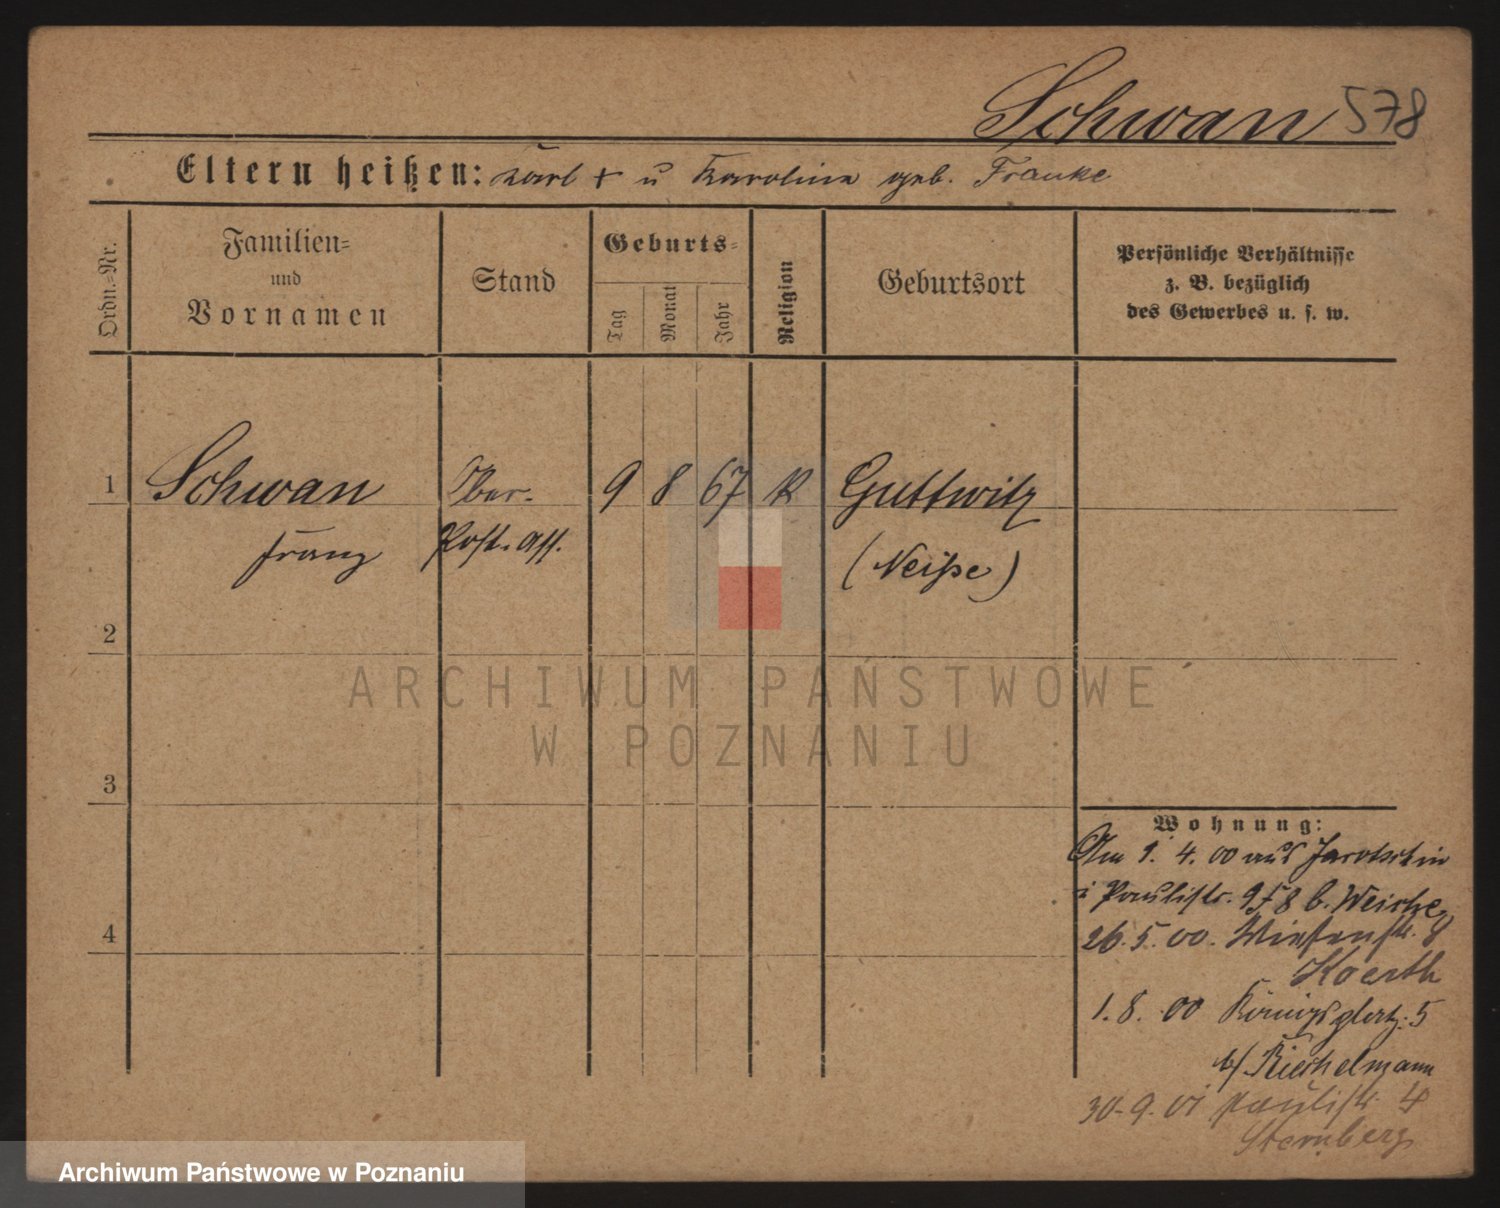 Schwan 578
Eltern heißen: Karl + u Karoline geb. Franke
Ordn.-Nr.
Familien-
und
Vornamen
Stand
Geburts-
Tag
Monat
Jahr
Religion
Geburtsort
Persönliche Verhältnisse
z. B. bezüglich
des Gewerbes u. s. w.
1 Schwan Ober- 9 8 67 K Guttwitz
Franz Post. Ass. (Neiße)
2
ARCHIWUM PAŃSTWOWE
W POZNANIU
3
4
Wohnung:
Am 1. 4. 00 aus Jarotschin
i Paulistr. 9 b.
26. 5. 00. Wiesenstr. 8
Koerth
1. 8. 00 Königsplatz. 5
b/
30-9. 01 Paulistr. 4
Sternberg
Archiwum Państwowe w Poznaniu